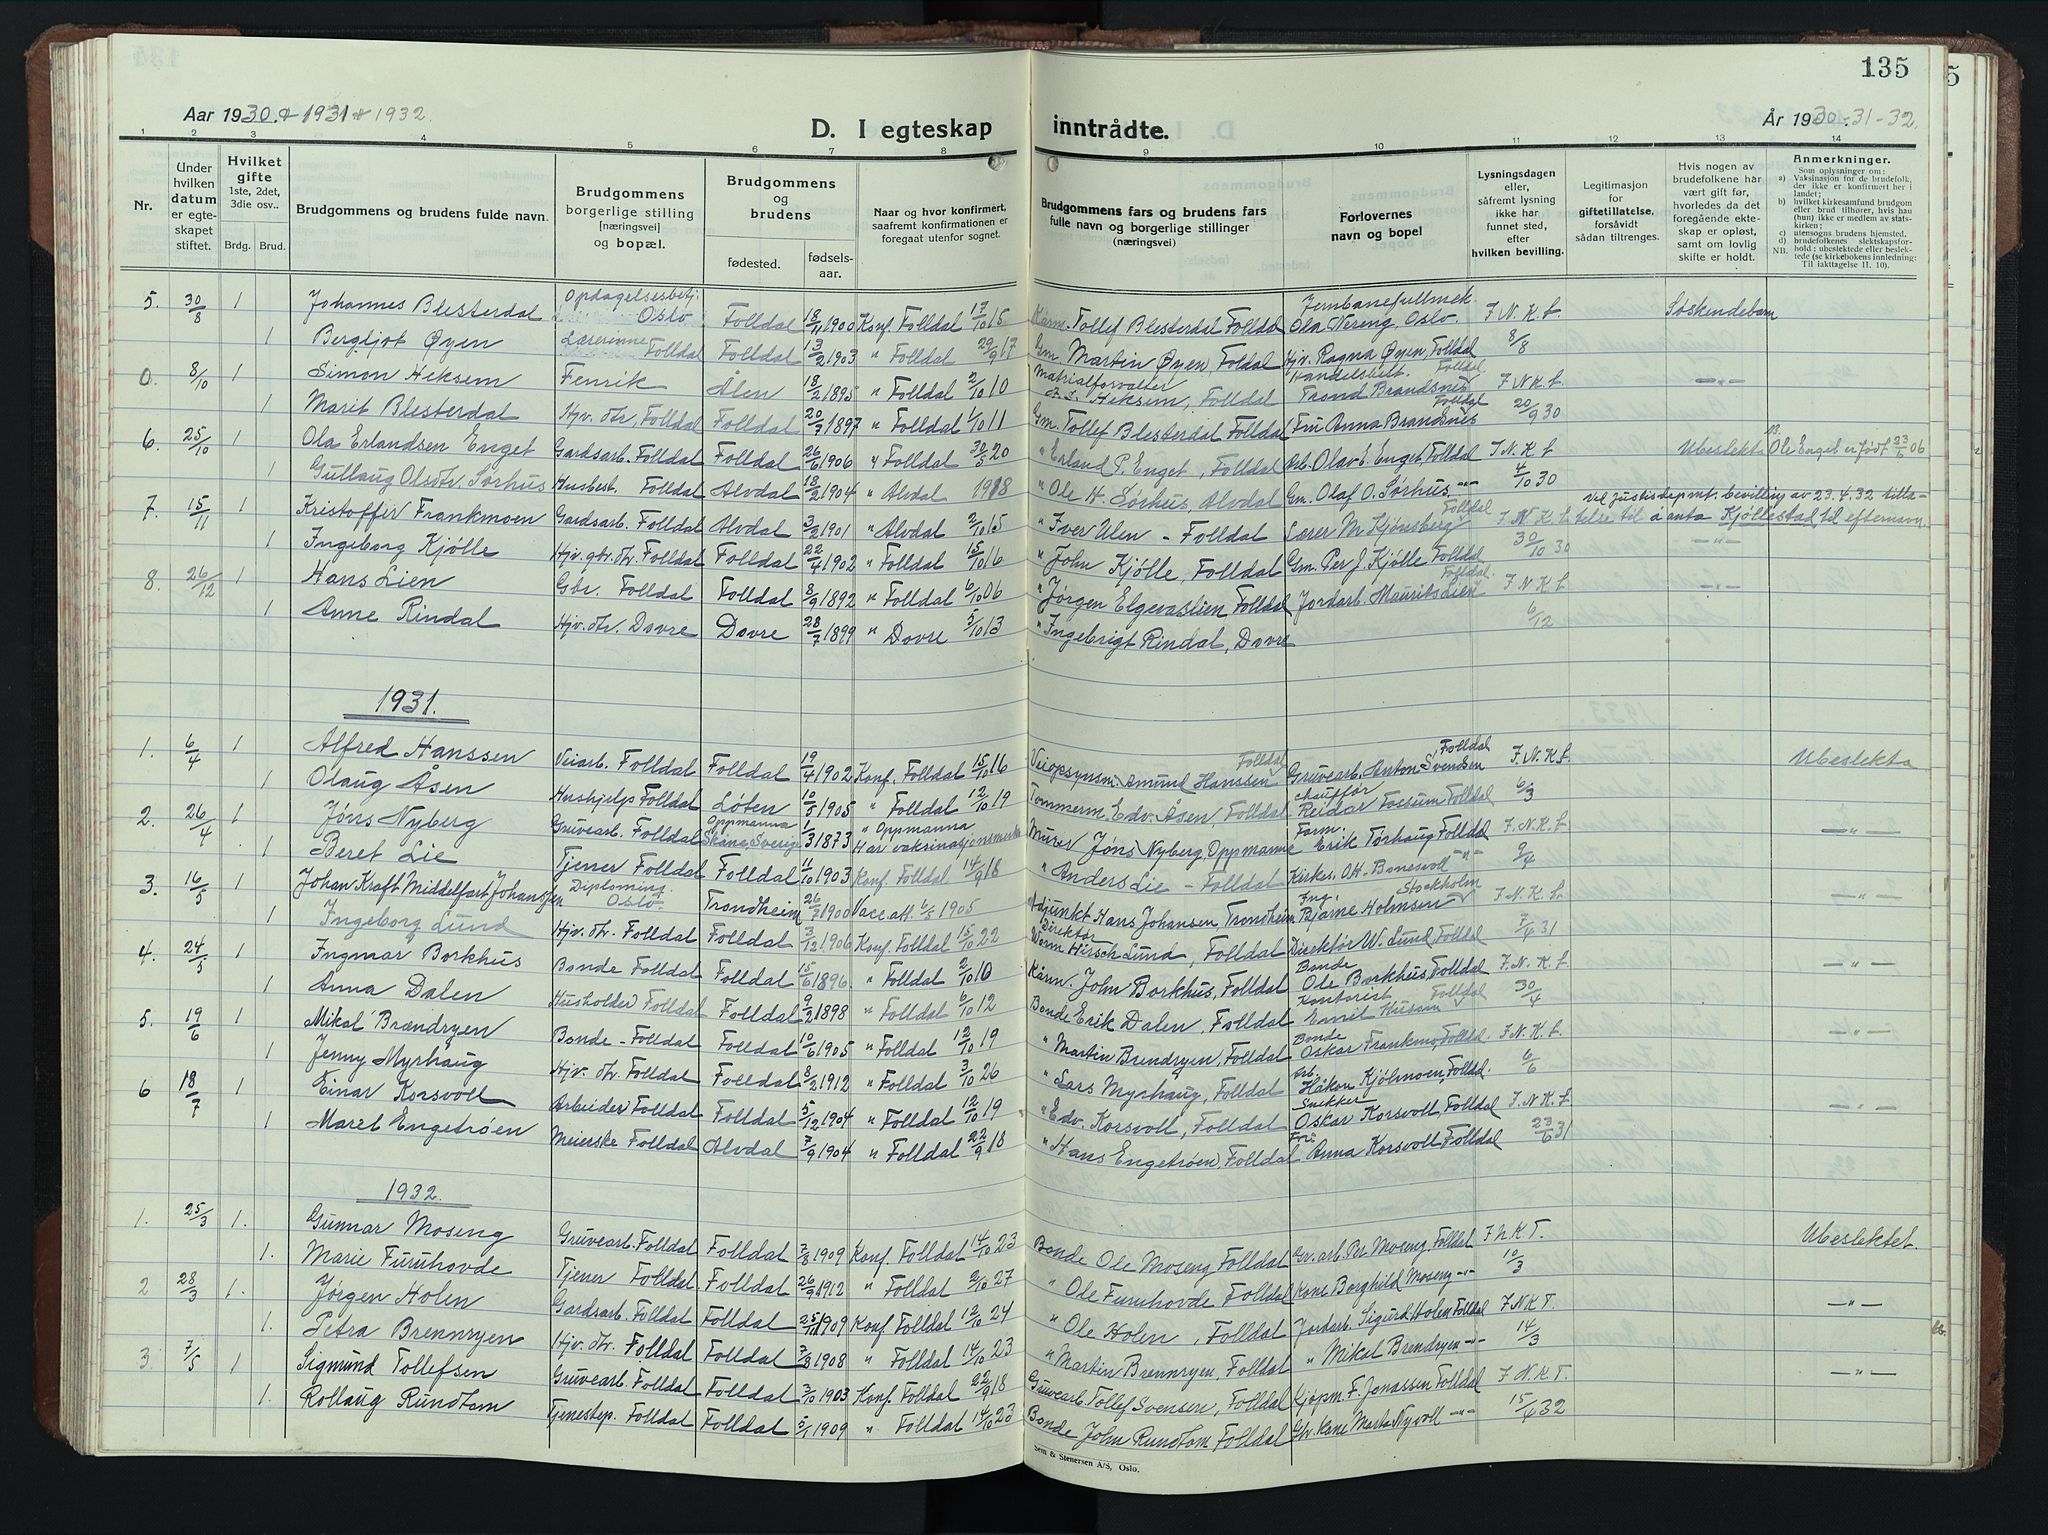 135
Aar 1930 & 1931 & 1932.
D. I egteskap inntrådte.
År 1930-31-32.
1 2 3 4 5 6 7 8 9 10 11 12 13 14
Nr.
Under hvilken datum er egteskapet stiftet.
Hvilket gifte 1ste, 2det, 3die osv.. Brdg. Brud.
Brudgommens og brudens fulde navn.
Brudgommens borgerlige stilling [næringsvei] og bopæl.
Brudgommens og brudens fødested. fødselsaar.
Naar og hvor konfirmert, saafremt konfirmationen er foregaat utenfor sognet.
Brudgommens fars og brudens fars fulle navn og borgerlige stillinger (næringsvei)
Forlovernes navn og bopel
Lysningsdagen eller, såfremt lysning ikke har funnet sted, efter hvilken bevilling.
Legitimasjon for giftetillatelse, forsåvidt sådan tiltrenges.
Hvis nogen av brudefolkene har vært gift før, hvorledes da det foregående ekteskap er opløst, samt om lovlig skifte er holdt.
Anmerkninger.
Som oplysninger om:
a) Vaksinasjon for de brudefolk, der ikke er konfirmert her i landet;
b) hvilket kirkesamfund brudgom eller brud tilhører, hvis hau (hun) ikke er medlem av statskirken;
c) utensogns brudens hjemsted.
d) brudefolkenes slektskapsforhold: ubeslektede eller beslektede (se kirkebokens innledning: Til iakttagelse II. 10).
NB.
5. 30/8 1 Johannes Blesterdal Opdagelsesbetj. Oslo Folldal 18/11 1900 Konf. Folldal 17/10 15 Kårm. Tollef Blesterdal Folldal Jernbanefullmek. Ola Nereng, Oslo. F. N. K. L. Søskendebarn
1 Bergljot Øyen Lærerinne Folldal Folldal 13/2 1903 " Folldal 29/9 17 Gm. Martin Øyen, Foldal Hjv. Ragna Øyen, Folldal 8/8
0. 8/10 1 Simon Heksem Fenrik Ålen 18/2 1895 " Folldal 2/10 10 Matrialforvalter Heksem, Folldal Handelsbest. Trond Brandsnes Folldal F. N. K. L. —"—
1 Marit Blesterdal Hjv. dtr. Folldal Folldal 20/7 1897 " Folldal 1/10 11 Gm. Tollef Blesterdal Folldal Fru Anna Brandsnes Folldal 20/9 30
6. 25/10 1 Ola Erlandsen Enget Gardsarb. Folldal Folldal 26/6 1906 " Folldal 30/5 20 " Erland P. Enget, Folldal Arb. Olav E. Enget, Folldal F. N. K. L. Ubeslekta Ole Enget er født 23/6 06
1 Gullaug Olsdtr. Sørhus Husbest. Folldal Alvdal 18/2 1904 " Alvdal 1918 " Ole H. Sørhus, Alvdal Gm. Olaf O. Sørhus —"— 4/10 30
7. 15/11 1 Kristoffer Frankmoen Gardsarb. Folldal Alvdal 3/2 1901 " Alvdal 2/10 15 " Iver Ulen - Folldal Lærer M. Kjønsberg Folldal F. N. K. L. Ved Justisdepmt. bevilling av 23.4.32 tillatelse til å anta Kjøllestad til efternavn.
1 Ingeborg Kjølle Hjv. gbr. dtr. Folldal Folldal 22/4 1902 " Folldal 15/10 16 " John Kjølle, Folldal Gm. Per J. Kjølle Folldal 30/10 30 —"—
8. 26/12 1 Hans Lien Gbr. Folldal Folldal 8/9 1892 " Folldal 6/10 06 " Jørgen Elgevaslien Folldal Jordarb. Maurits Lien Folldal F. N. K. L. —"—
1 Anne Rindal Hjv. dtr. Dovre Dovre 28/7 1899 " Dovre 5/10 13 " Ingebrigt Rindal, Dovre 6/12
1931.
1. 6/4 1 Alfred Hanssen Veiarb. Folldal Folldal 19/4 1902 Konf. Folldal 15/10 16 Veiopsynsm. Amund Hanssen Folldal Gruvearb. Anton Svendsen Folldal F. N. K. L. Ubeslekta
1 Olaug Åsen Hushjelp Folldal Løten 10/5 1905 " Folldal 12/10 19 Tømmerm. Edv. Åsen, Folldal chauffør Reidar Fossum Folldal 6/3
2. 26/4 1 Jøns Nyberg Gruvearb. Folldal Oppmanna Skåne, Sverige 1/3 1873 " Oppmanna Har vaksinasjonsmerke Murer Jøns Nyberg Oppmanna Farm. Erik Tørhaug Folldal F. N. K. L. —"—
1 Beret Lie Tjener Folldal Folldal 11/10 1903 Konf. Folldal 14/9 18 " Anders Lie - Folldal Kirkes. O.H. Bonesvoll —"— 9/4
3. 16/5 1 Johan Kraft Middelfart Johansen Diploming. Oslo. Trondheim 26/2 1900 Vacc. att. 6/5 1905 Adjunkt Hans Johansen Trondheim Ing. Bjarne Holmsen Stockholm F. N. K. L. —"—
1 Ingeborg Lund Hjv. dtr. Folldal Folldal 3/12 1906 Konf. Folldal 15/10 22 Direktør Worm Hirsch Lund, Folldal Direktør W. Lund, Folldal 7/4 31
4. 24/5 1 Ingmar Borkhus Bonde Folldal Folldal 15/6 1896 " Folldal 2/10 10 Kårm. John Borkhus, Folldal Bonde Ole Borkhus, Folldal F. N. K. L. —"—
1 Anna Dalen Husholder Folldal Folldal 9/2 1898 " Folldal 6/10 12 Bonde Erik Dalen, Folldal Kontorist Emil Husum Folldal 30/4
5. 19/6 1 Mikal Brændryen Bonde - Folldal Folldal 10/6 1905 " Folldal 12/10 19 " Martin Brendryen, Folldal Bonde Oskar Frankmo, Folldal. F. N. K. L. —"—
1 Jenny Myrhaug Hjv. dtr. Folldal Folldal 8/2 1912 " Folldal 3/10 26 " Lars Myrhaug, Folldal Arb. Håkon Kjølmoen, Folldal. 6/6
6 18/7 1 Einar Korsvoll Arbeider Folldal Folldal 5/12 1904 " Folldal 12/10 19 " Edv. Korsvoll, Folldal Snekker Oskar Korsvoll, Folldal F. N. K. L. —"—
1 Maret Engetrøen Meierske Folldal Alvdal 7/9 1904 " Folldal 22/9 18 " Hans Engetrøen, Folldal Frk. Anna Korsvoll Folldal 23/6 31
1932.
1. 25/3 1. Gunnar Moseng Gruvearb. Folldal Folldal 7/8 1909 Konf. Folldal 14/10 23 Bonde Ole Moseng Folldal Gr. arb. Per Moseng. Folldal F. N. K. T. Ubeslektet.
1. Marie Furuhovde Tjener Folldal Folldal 26/9 1912 " Folldal 2/10 27 " Ole Furuhovde Folldal Kone Borghild Moseng —"— 10/3
2 28/3 1. Jørgen Holen Gardsarb. Folldal Folldal 25/11 1909 Konf. Folldal 12/10 24 " Ole Holen, Folldal Jordarb. Sigurd Holen Folldal F. N. K. T. —"—
1. Petra Brennryen Hjv. dtr. Folldal Folldal 7/8 1908 " Folldal 14/10 23 " Martin Brennryen, Folldal " Mikal Brendryen —"— 14/3
3 7/5 1 Sigmund Tollefsen Gruvearb. Folldal Folldal 3/10 1903 Konf. Folldal 22/9 18 Gruvearb. Tollef Svensen, Folldal Kjøpm. F. Jonassen Folldal F. N. K. T. —"—
1. Rollaug Rundtom Tjenestep. Folldal Folldal 5/1 1909 " Folldal 14/10 23 Bonde John Rundtom Folldal Gbr. Kone Marta Nyvoll —"— 15/4 32
Sem & Stenersen A/S, Oslo.